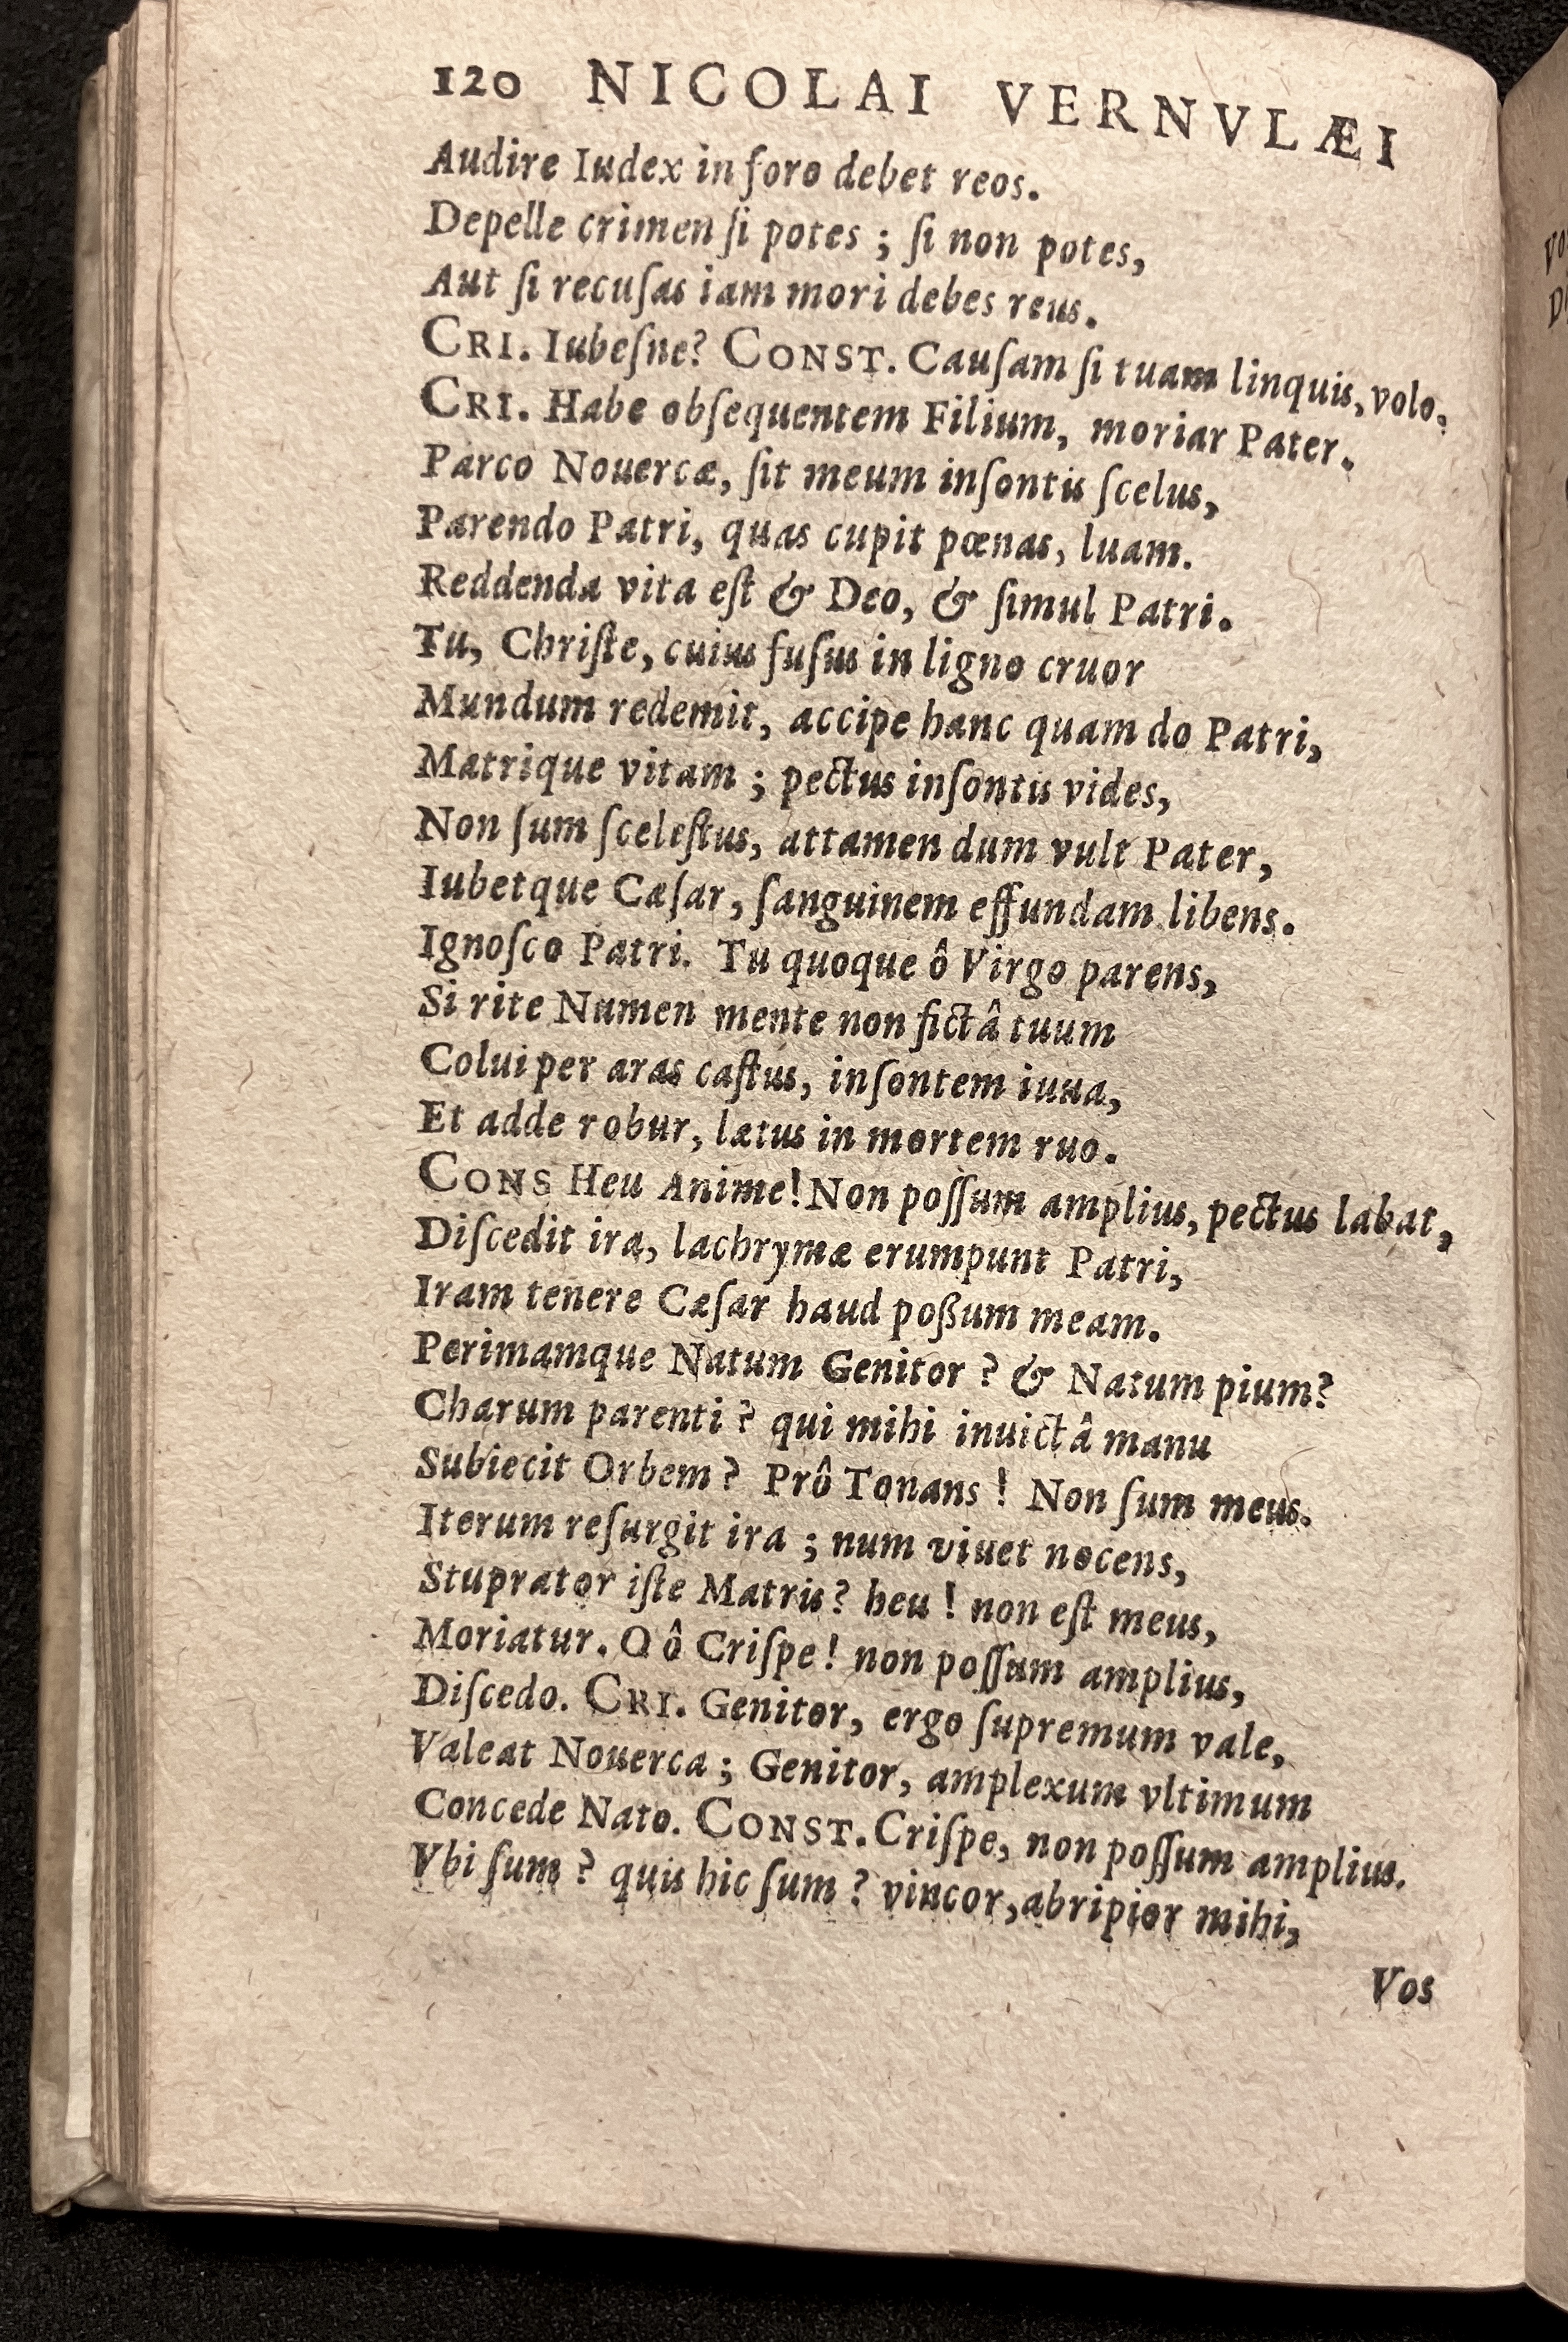 120 NICOLAI VERNVLÆI
Audire Iudex in foro debet reos.
Depelle crimen ſi potes ; ſi non potes,
Aut ſi recuſas iam mori debes reus.
CRI. Iubeſne? CONST. Cauſam ſi tuam linquis, volo.
CRI. Habe obſequentem Filium, moriar Pater.
Parco Nouercæ, ſit meum inſontis ſcelus,
Parendo Patri, quas cupit pœnas, luam.
Reddenda vita eſt & Deo, & ſimul Patri.
Tu, Chriſte, cuius fuſus in ligno cruor
Mundum redemit, accipe hanc quam do Patri,
Matrique vitam ; pectus inſontis vides,
Non ſum ſceleſtus, attamen dum vult Pater,
Iubetque Cæſar, ſanguinem effundam libens.
Ignoſco Patri. Tu quoque ô Virgo parens,
Si rite Numen mente non fictâ tuum
Colui per aras caſtus, inſontem iuua,
Et adde robur, lætus in mortem ruo.
CONS Heu Anime! Non poſſum amplius, pectus labat,
Diſcedit ira, lachrymæ erumpunt Patri,
Iram tenere Cæſar haud poßum meam.
Perimamque Natum Genitor ? & Natum pium?
Charum parenti ? qui mihi inuictâ manu
Subiecit Orbem ? Prô Tonans ! Non ſum meus.
Iterum reſurgit ira ; num viuet nocens,
Stuprator iſte Matris ? heu ! non eſt meus,
Moriatur. O ô Criſpe ! non poſſum amplius,
Diſcedo. CRI. Genitor, ergo ſupremum vale,
Valeat Nouerca ; Genitor, amplexum vltimum
Concede Nato. CONST. Criſpe, non poſſum amplius.
Vbi ſum ? quis hic ſum ? vincor, abripior mihi,
Vos